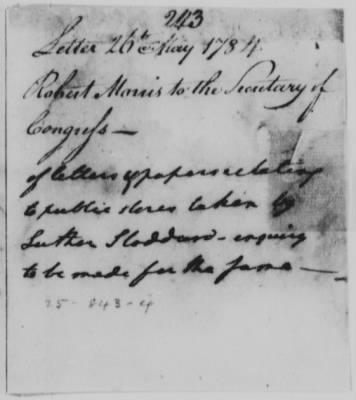 243
Letter 26th May 1784
Robert Morris to the Secretary of
Congress —
of letters & papers relating
to public stores taken by
Luther Stoddard - enquiry
to be made for the same —
25-243-4